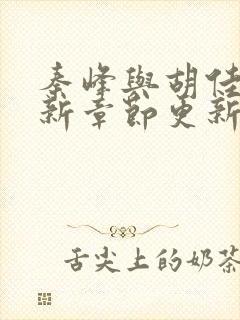 秦峰與胡佳
新章節更新
舌尖上的奶茶